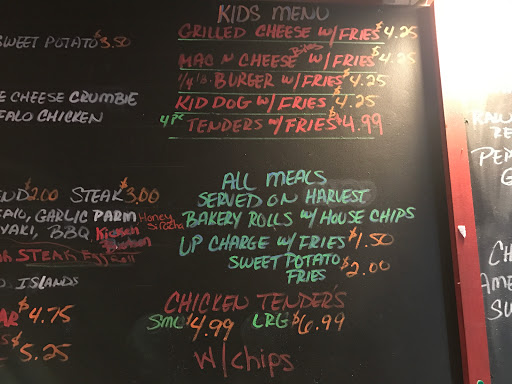 KIDS MENU
GRILLED CHEESE W/FRIES $4.25
MAC N CHEESE Bites W/FRIES $4.25
1/4 lb. BURGER W/FRIES $4.25
KID DOG W/FRIES $4.25
4 PC TENDERS W/FRIES $4.99
SWEET POTATO $3.50
E CHEESE CRUMBLE
FALO CHICKEN
ALL MEALS
SERVED ON HARVEST
BAKERY ROLLS W/ HOUSE CHIPS
UP CHARGE W/FRIES $1.50
SWEET POTATO FRIES $2.00
CHICKEN TENDER'S
SML $4.99 LRG $6.99
W/chips
END $2.00 STEAK $3.00
FALO, GARLIC PARM Honey Siracha
YAKI, BBQ,
STEAK Egg Roll
ISLANDS
$4.75
$5.25
PEP
G
CH
AME
SU